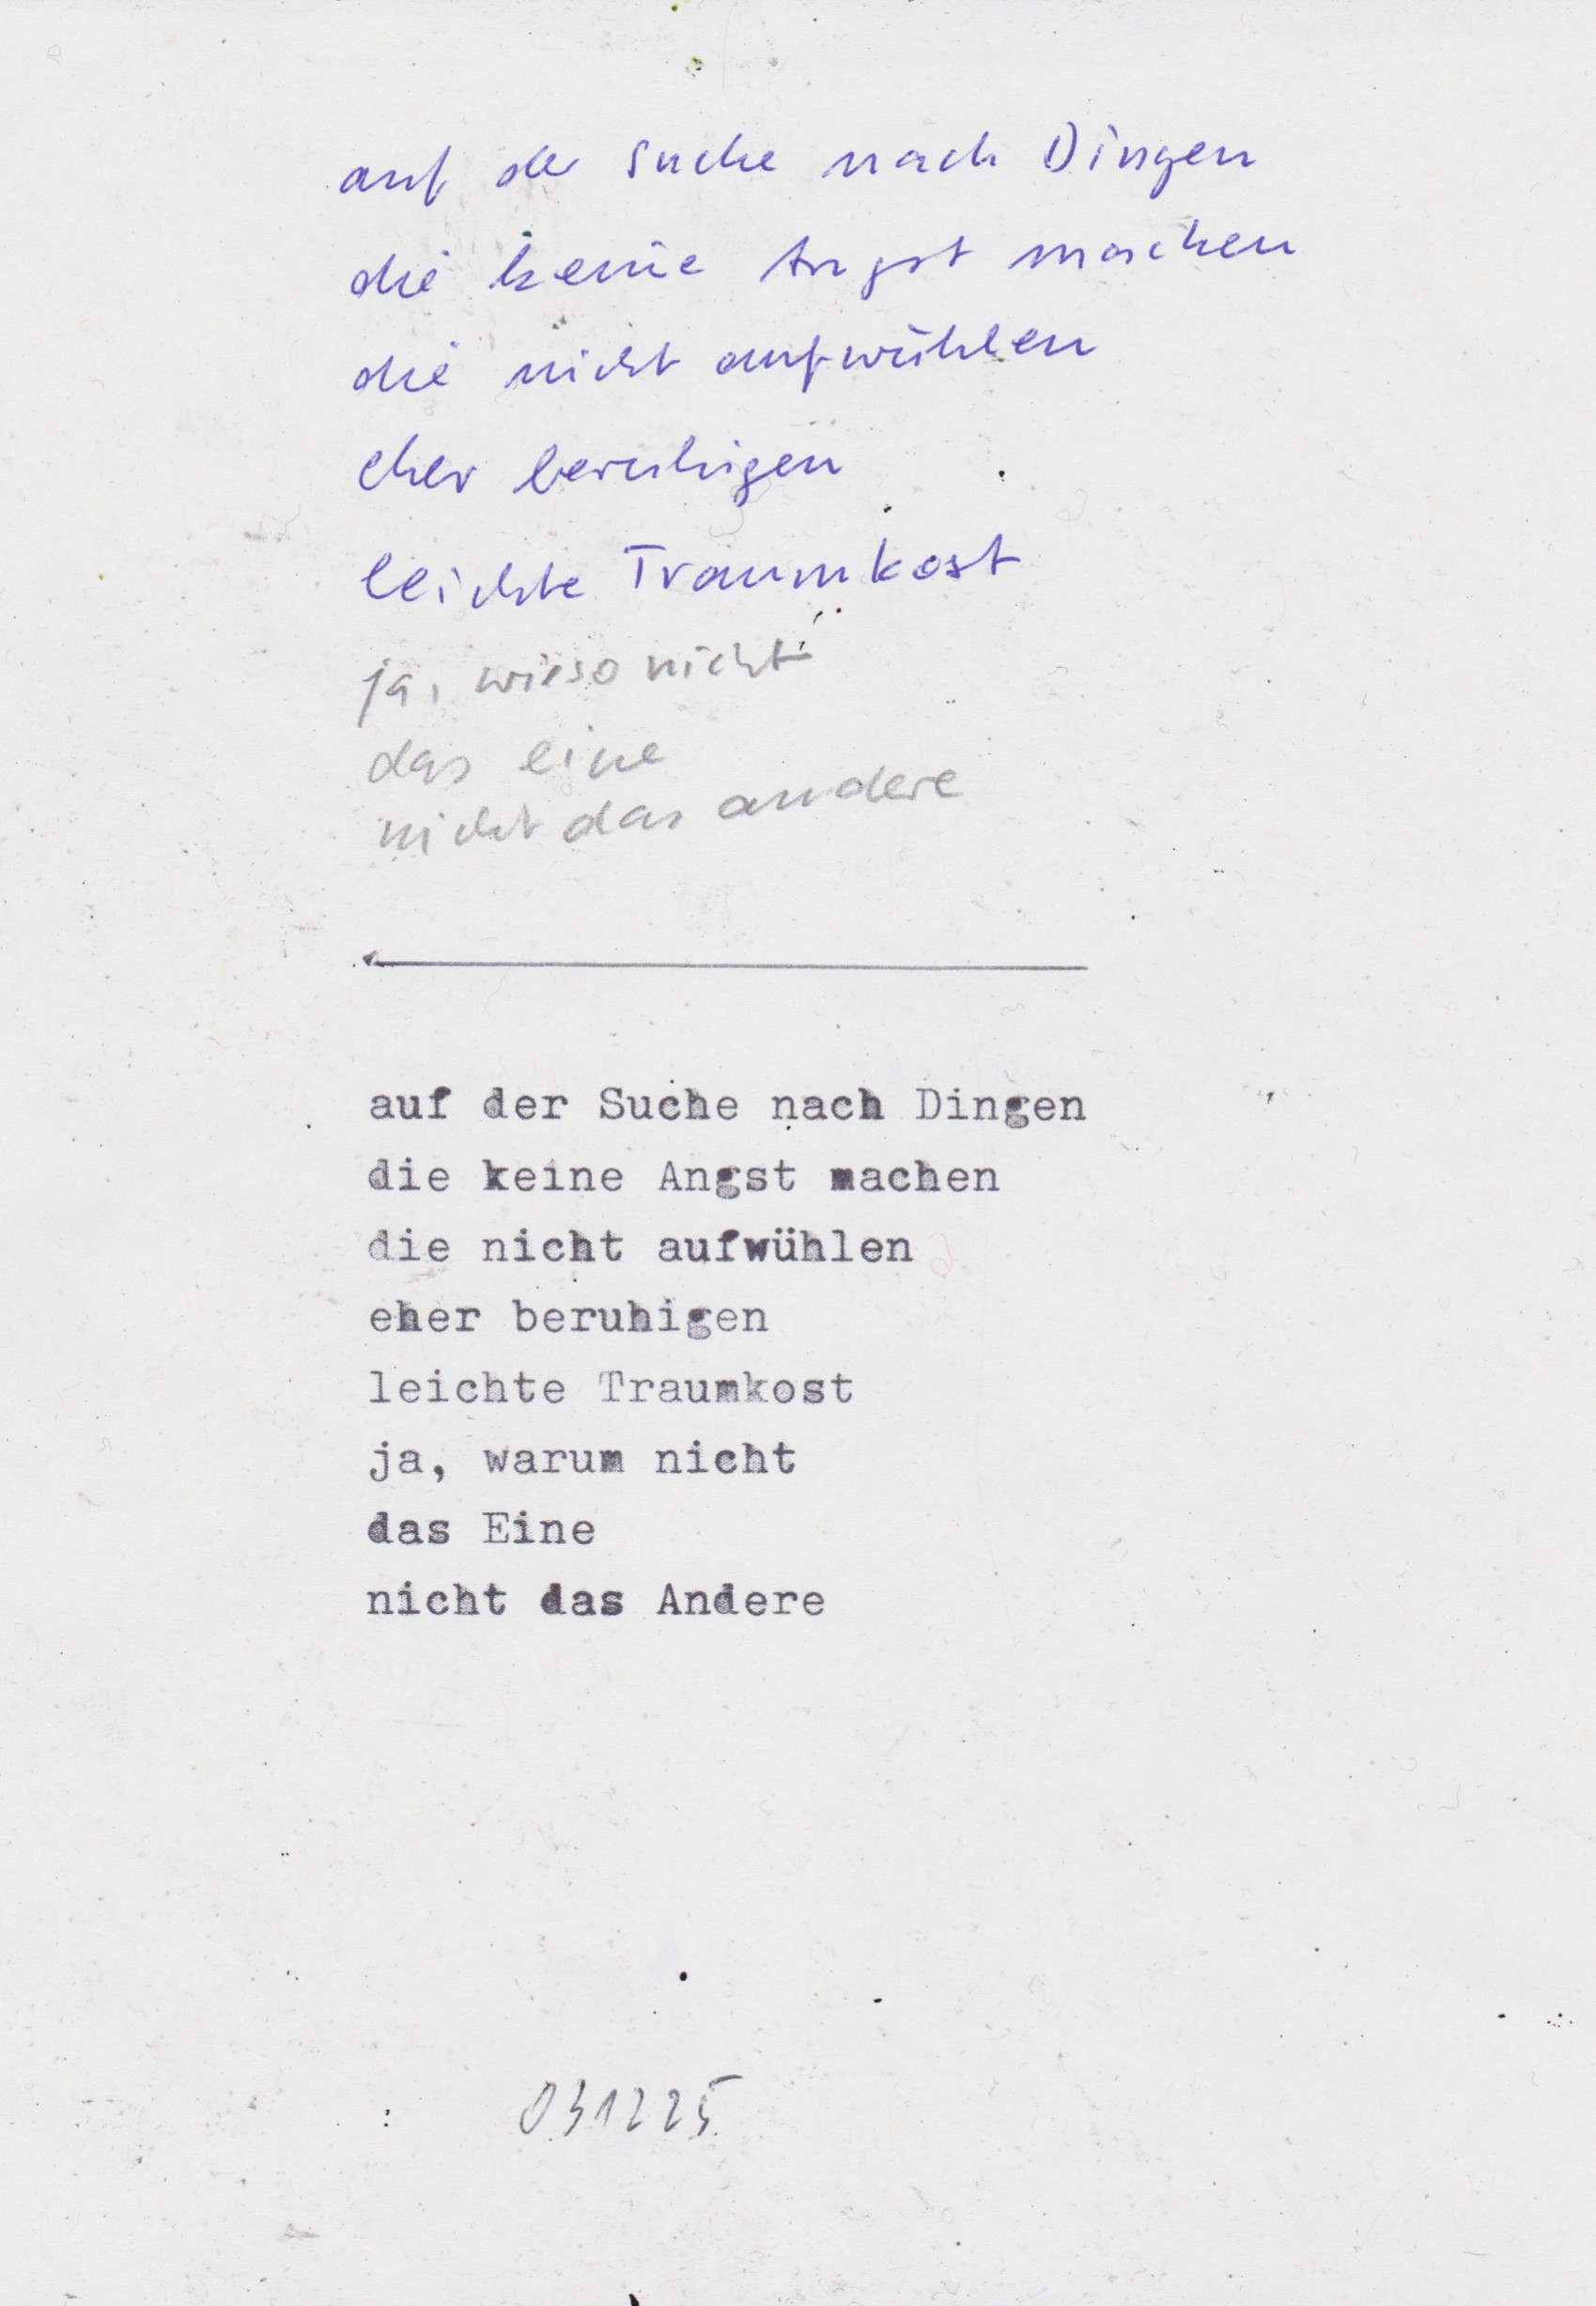 auf der Suche nach Dingen
die keine Angst machen
die nicht aufwühlen
eher beruhigen
leichte Traumkost
ja, wieso nicht
das eine
nicht das andere
auf der Suche nach Dingen
die keine Angst machen
die nicht aufwühlen
eher beruhigen
leichte Traumkost
ja, warum nicht
das Eine
nicht das Andere
031225